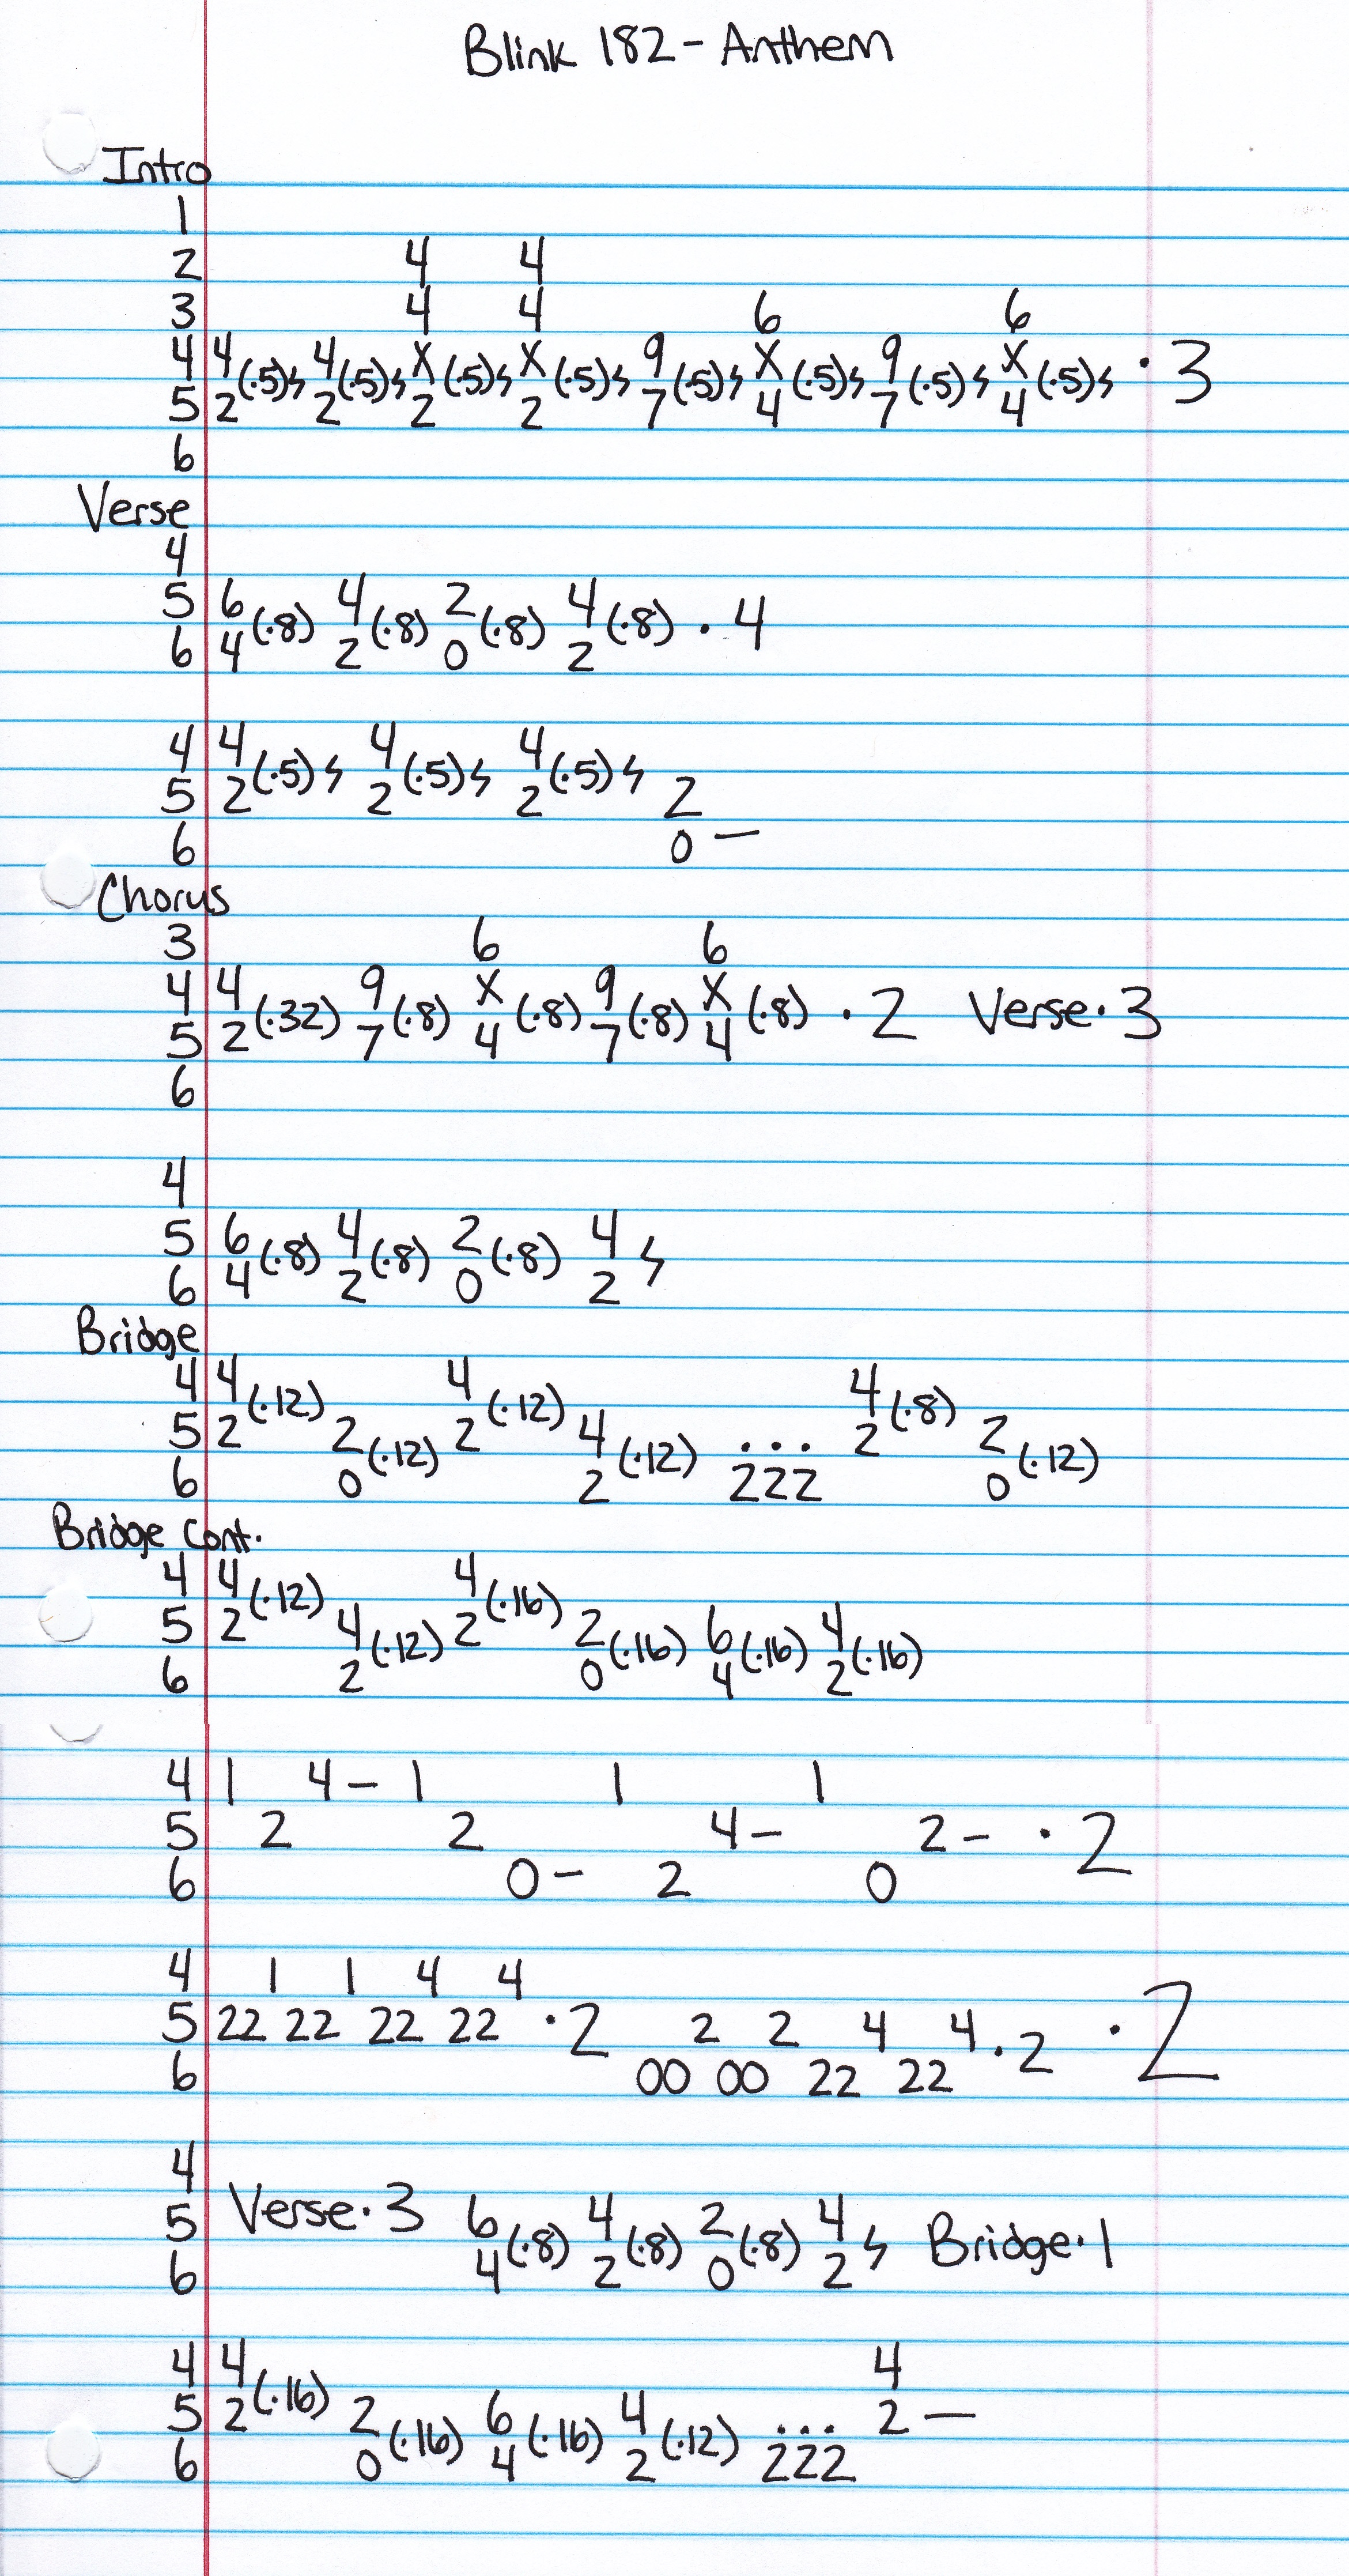 Blink 182 - Anthem
Intro
1
2 4 4
3 4 4 6 6
4 4 4 x x 9 x 9 x
(·5)ϟ (·5)ϟ (·5)ϟ (·5)ϟ (·5)ϟ (·5)ϟ (·5)ϟ (·5)ϟ · 3
5 2 2 2 2 7 4 7 4
6
Verse
4
5 6 4 2 4
(·8) (·8) (·8) (·8) · 4
6 4 2 0 2
4 4 4 4
(·5)ϟ (·5)ϟ (·5)ϟ
5 2 2 2 2
6 0 —
Chorus
3 6 6
4 4 9 x 9 x
(·32) (·8) (·8) (·8) (·8) · 2 Verse · 3
5 2 7 4 7 4
6
4
5 6 4 2 4
(·8) (·8) (·8) ϟ
6 4 2 0 2
Bridge
4 4 4 4
(·12) (·12) (·8)
5 2 2 2 4 ... 2 2
(·12) (·12) (·12)
6 0 2 222 0
Bridge Cont.
4 4 4
(·12) (·16)
5 2 4 2 2 6 4
(·12) (·16) (·16) (·16)
6 2 0 4 2
4 1 4 — 1 1 1
5 2 2 4 — 2 — · 2
6 0 — 2 0
4 1 1 4 4
5 22 22 22 22 · 2 2 2 4 4 · 2 · 2
6 00 00 22 22
4
5 Verse · 3 6 4 2 4
(·8) (·8) (·8) ϟ Bridge · 1
6 4 2 0 2
4 4 4
(·16)
5 2 2 6 4 ... 2 —
(·16) (·16) (·12)
6 0 4 2 222